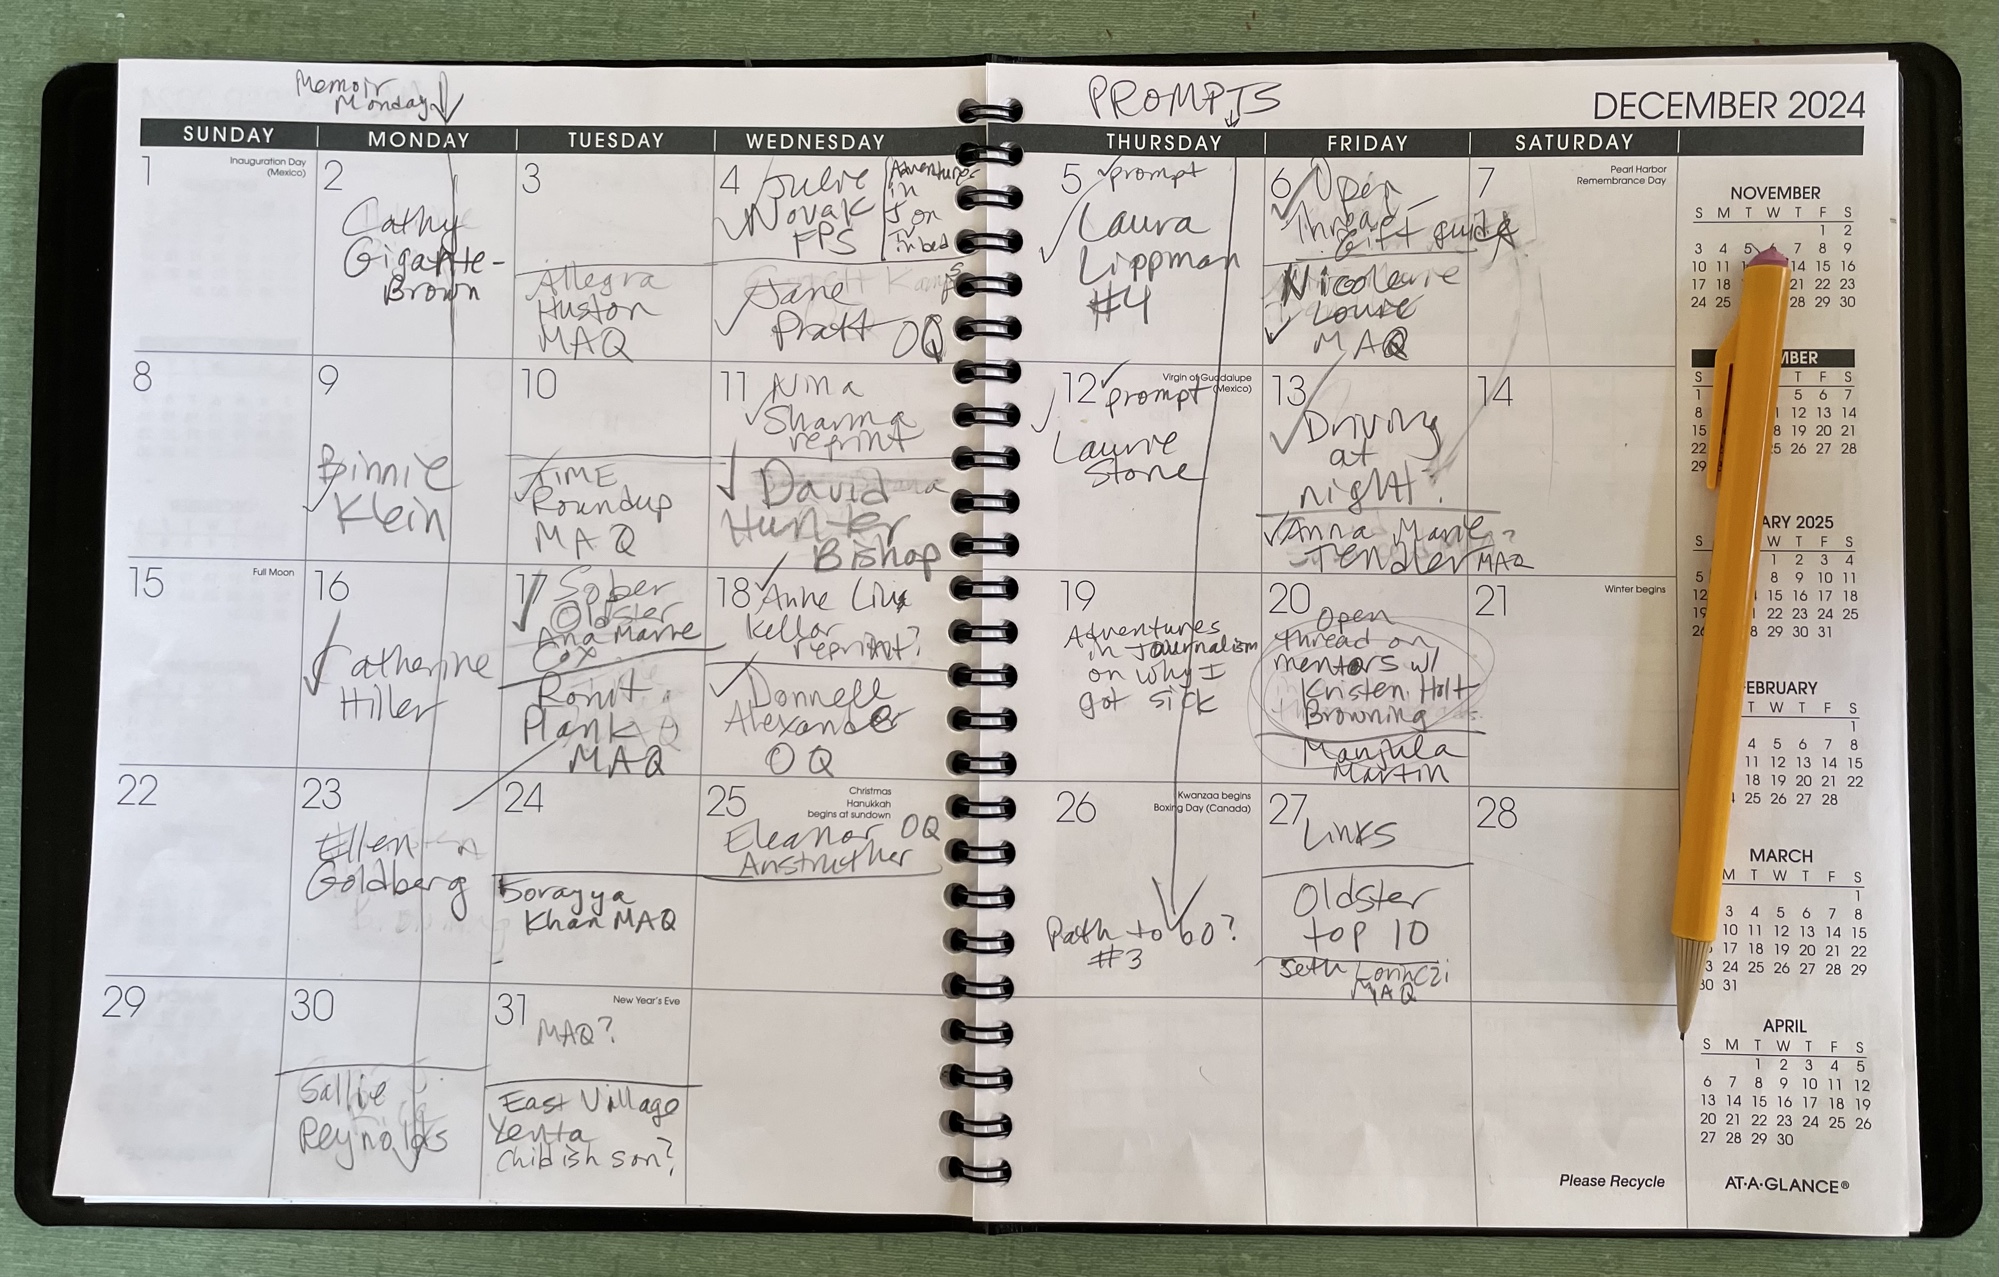 Memoir
Monday
PROMPTS
DECEMBER 2024
SUNDAY MONDAY TUESDAY WEDNESDAY THURSDAY FRIDAY SATURDAY
1
Inauguration Day
(Mexico)
2
Cathy
Gigante-
Brown
3
Allegra
Huston
MAQ
4
Novak
FPS
Adventures
in
J on
in bed
Jane
Pratt OQ
5
prompt
Laura
Lippman
#4
6
Open
Thread-
Gift guide
Louie
MAQ
7
Pearl Harbor
Remembrance Day
8
9
Binnie
Klein
10
TIME
Roundup
MAQ
11
Nina
Sharma
reprint
David
Hunter
Bishop
12
Virgin of Guadalupe
(Mexico)
prompt
Laurie
Stone
13
Driving
at
night
Anna Marie
Tendler MAQ
14
15
Full Moon
16
Catherine
Hiller
17
Sober
Oldster
Ana Marie
Cox
Ronit
Plank
MAQ
18
Anne Liu
Kellor
reprint?
Donnell
Alexander
OQ
19
Adventures
in Journalism
on why I
got sick
20
Open
thread on
mentors w/
Kristen Holt
Browning
Manjula
Martin
21
Winter begins
22
23
Ellen
Goldberg
24
Sorayya
Khan MAQ
25
Christmas
Hanukkah
begins at sundown
Eleanor OQ
Anstruther
26
Kwanzaa begins
Boxing Day (Canada)
Path to 60?
#3
27
Links
Oldster
top 10
Seth Lorinczi
MAQ
28
29
30
Sallie
Reynolds
31
New Year's Eve
MAQ?
East Village
Yenta
Childish son?
NOVEMBER
S M T W T F S
1 2
3 4 5 6 7 8 9
10 11 14 15 16
17 18 21 22 23
24 25 28 29 30
MBER
S T F S
1 5 6 7
8 12 13 14
15 19 20 21
22 26 27 28
29
ARY 2025
S W T F S
1 2 3 4
5 8 9 10 11
12 16 17 18
19 22 23 24 25
29 30 31
EBRUARY
T W T F S
1
4 5 6 7 8
12 13 14 15
18 19 20 21 22
25 26 27 28
MARCH
M T W T F S
1
3 4 5 6 7 8
10 11 12 13 14 15
17 18 19 20 21 22
24 25 26 27 28 29
30 31
APRIL
S M T W T F S
1 2 3 4 5
6 7 8 9 10 11 12
13 14 15 16 17 18 19
20 21 22 23 24 25 26
27 28 29 30
Please Recycle
AT-A-GLANCE®